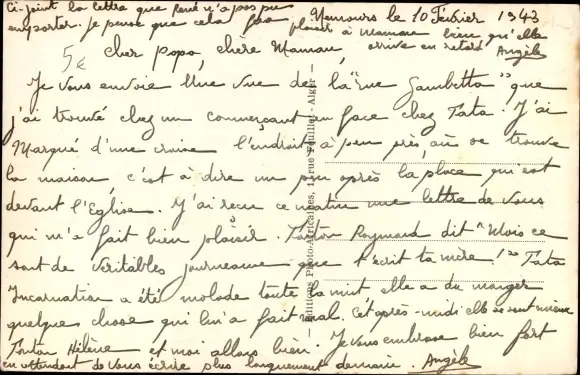 Ci-joint la lettre que René n'a pas pu
emporter. Je pense que cela fera plaisir à Maman bien qu'elle
arrive en retard Angèle
Nemours le 10 Février 1943
5€
Cher papa, chère Maman,
Je vous envoie une vue de la "rue Gambetta" que
j'ai trouvé chez un commerçant en face chez Tata. J'ai
Marqué d'une croix l'endroit à peu près, où se trouve
la maison, c'est à dire un peu après la place qui est
devant l'Eglise. J'ai reçu ce matin une lettre de vous
qui m'a fait bien plaisir. Tonton Raymond dit "Mais ce
sont de véritables journeaux que t'écrit ta mère!" Tata
Incarnation a été malade toute la nuit elle a du manger
quelque chose qui lui a fait mal. Cet après-midi elle se sent mieux
Tonton Hélène et moi allons bien. Je vous embrasse bien fort
en attendant de vous écrire plus longuement demain. Angèle
Editions Photo-Africaines, 1, rue Feuillet - Alger